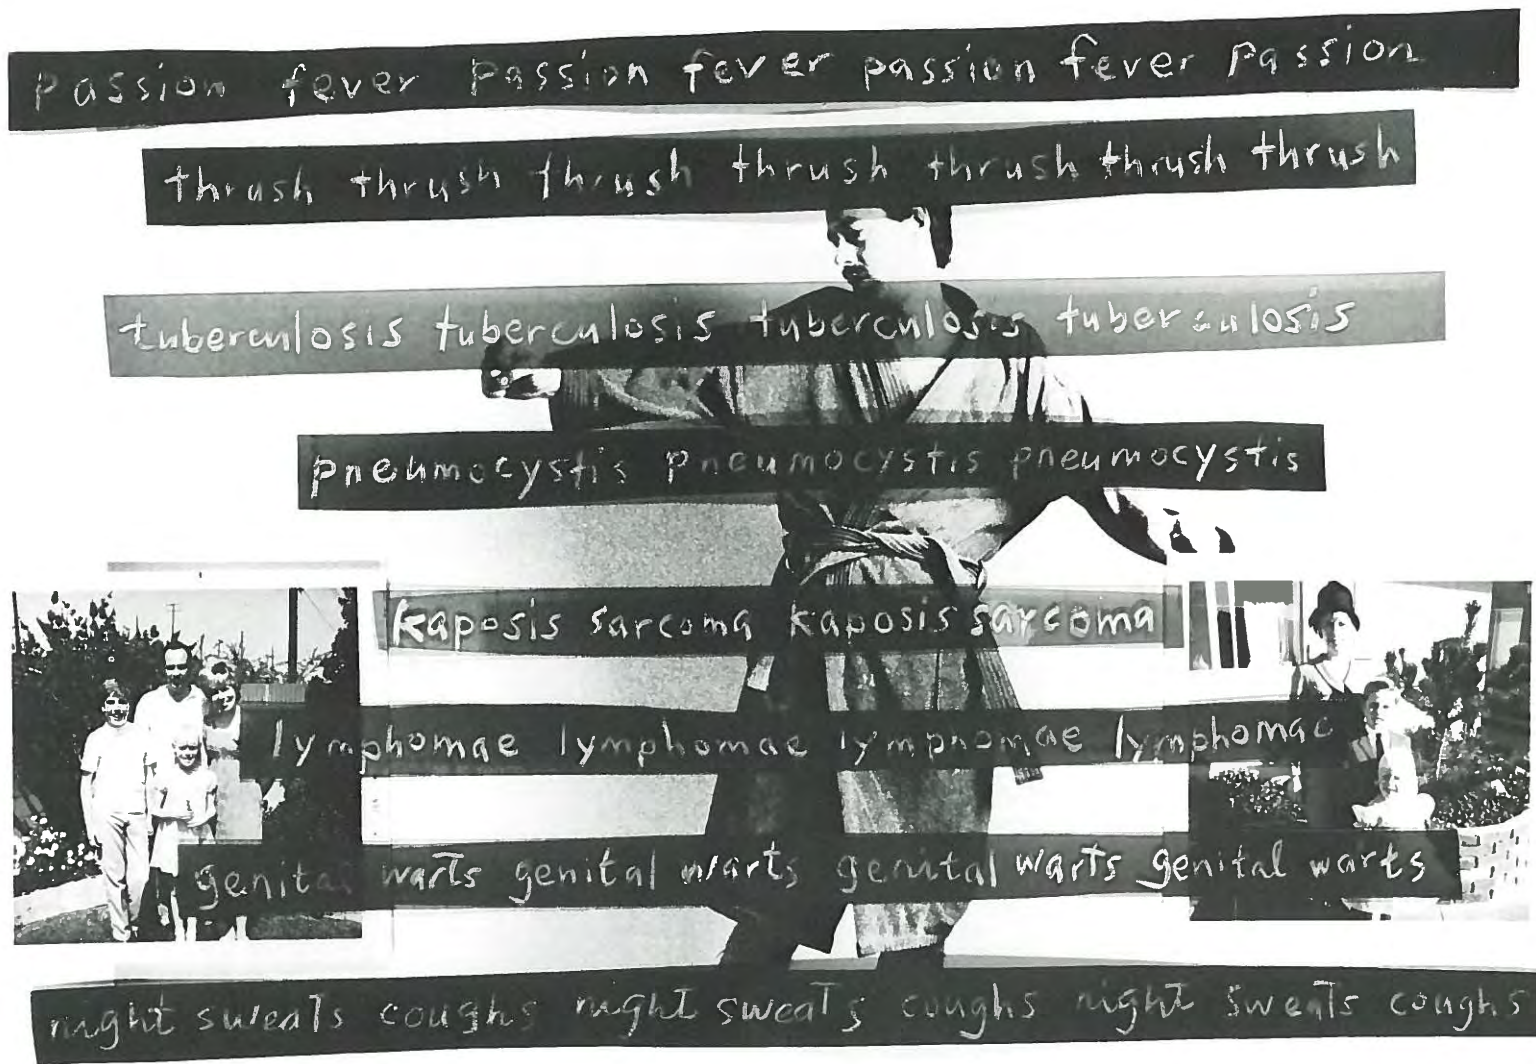 passion fever passion fever passion fever passion
thrush thrush thrush thrush thrush thrush thrush
tuberculosis tuberculosis tuberculosis tuberculosis
pneumocystis pneumocystis pneumocystis
kaposis sarcoma kaposis sarcoma
lymphomae lymphomae lymphomae lymphomae
genital warts genital warts genital warts genital warts
night sweats coughs night sweats coughs night sweats coughs